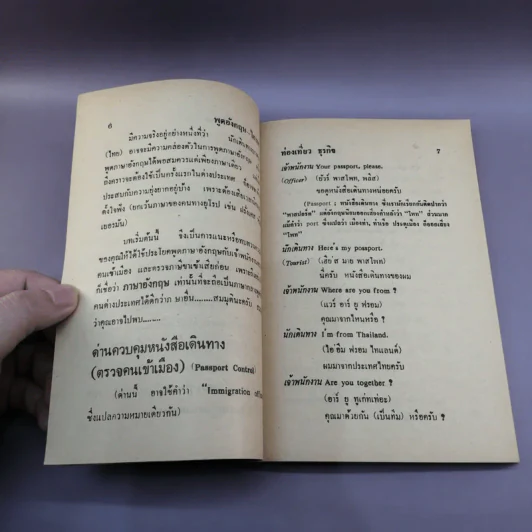 6 พูดอังกฤษ
มีความจริงอยู่อย่างหนึ่งที่ว่า
(ไทย) อาจจะมีความคล่องตัวในการพูดภาษา
ภาษาอังกฤษได้พอสมควรแต่เพียงภาษาเดียว
ประสบกับความยุ่งยากอยู่บ้าง
ตั้งใจฟัง (ยกเว้นภาษาของคนทางยุโรป เช่น
เยอรมัน)
บทเริ่มต้นนี้ จึงเป็นการแนะ
ของคุณให้ได้ใช้ประโยคพูดภาษาอังกฤษกับเจ้า
คนเข้าเมือง
ก็เชื่อว่า ภาษาอังกฤษ เท่านั้นที่จะถือเป็นภาษา
คนต่างประเทศได้ดีกว่า
ว่าคุณอาจไปพบ
ด่านควบคุมหนังสือเดินทาง
(ตรวจคนเข้าเมือง) (Passport Control)
(ด่านนี้ อาจใช้คำว่า "Immigration
ซึ่งแปลความหมายเดียวกัน)
ท่องเที่ยว ธุรกิจ 7
เจ้าพนักงาน Your passport, please.
(Officer) (ยัวร์ พาสโพท, พลิส)
ขอดูหนังสือเดินทางหน่อยครับ
(Passport : หนังสือเดินทาง ซึ่งเรามักเรียกกันติดปากว่า
"พาสปอร์ต" แต่อังกฤษนิยมออกเสียงคำท้ายว่า "โพท" ส่วนมาก
แม้คำว่า port ซึ่งแปลว่า เมืองท่า, ท่าเรือ ประตูเมือง ก็ออกเสียง
"โพท"
นักเดินทาง Here's my passport.
(Tourist) (เฮีย'ส มาย พาสโพท)
นี่ครับ หนังสือเดินทางของผม
เจ้าพนักงาน Where are you from ?
(แวร์ อาร์ ยู ฟรอม)
คุณมาจากไหนหรือ ?
นักเดินทาง I'm from Thailand.
(ไอ'อึม ฟรอม ไทแลนด์)
ผมมาจากประเทศไทยครับ
เจ้าพนักงาน Are you together ?
(อาร์ ยู ทูเก็ทเท่อะ)
คุณมาด้วยกัน (เป็นทีม) หรือครับ ?